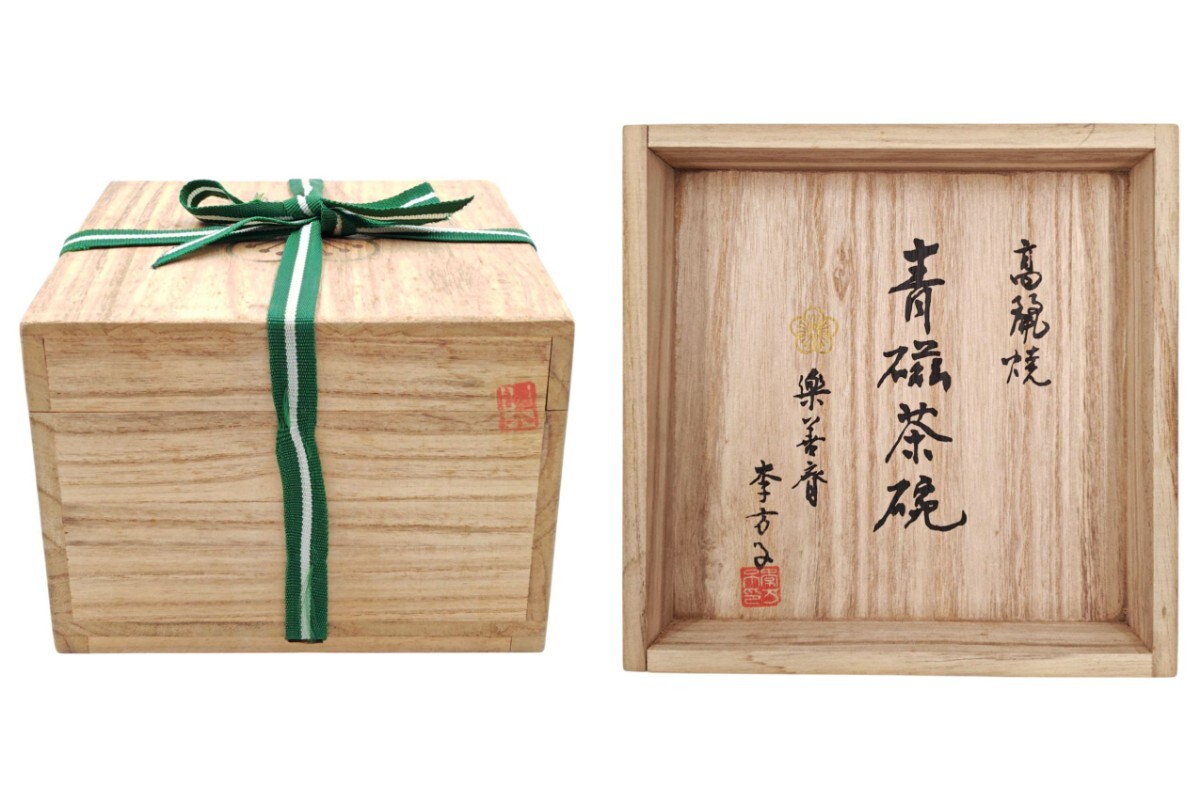 高麗焼
青磁茶碗
樂善齋
李方子